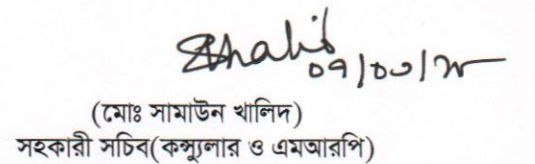 Khalid
০৭/০৩/১৮
(মোঃ সামাউন খালিদ)
সহকারী সচিব(কন্স্যুলার ও এমআরপি)